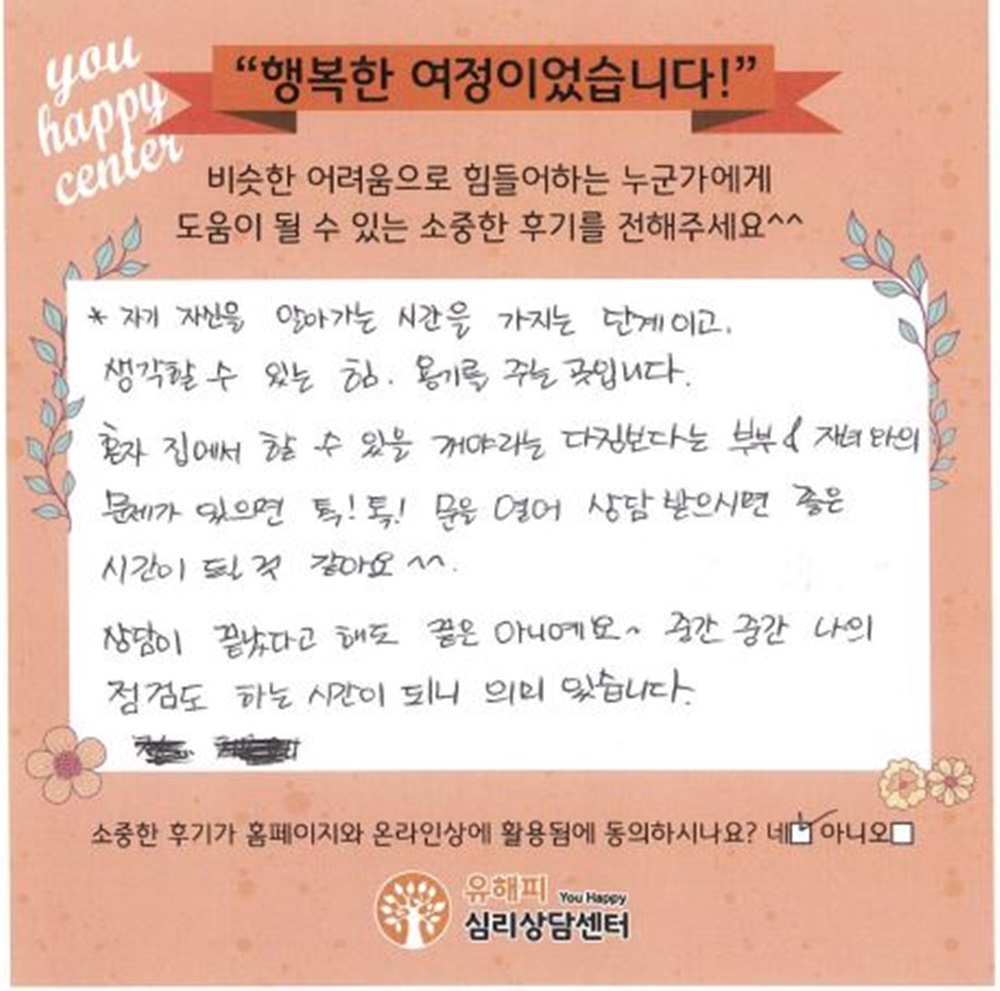 you
happy
center
“행복한 여정이었습니다!”
비슷한 어려움으로 힘들어하는 누군가에게
도움이 될 수 있는 소중한 후기를 전해주세요^^
* 자기 자신을 알아가는 시간을 가지는 단계이고,
생각할 수 있는 힘. 용기를 주는 곳입니다.
혼자 집에서 할 수 있을 거야라는 다짐보다는 부부 & 자녀와의
문제가 있으면 톡! 톡! 문을 열어 상담 받으시면 좋은
시간이 될 것 같아요 ^^.
상담이 끝났다고 해도 끝은 아니예요~ 중간 중간 나의
점검도 하는 시간이 되니 의미 있습니다.
소중한 후기가 홈페이지와 온라인상에 활용됨에 동의하시나요? 네☑ 아니오☐
유해피 You Happy
심리상담센터